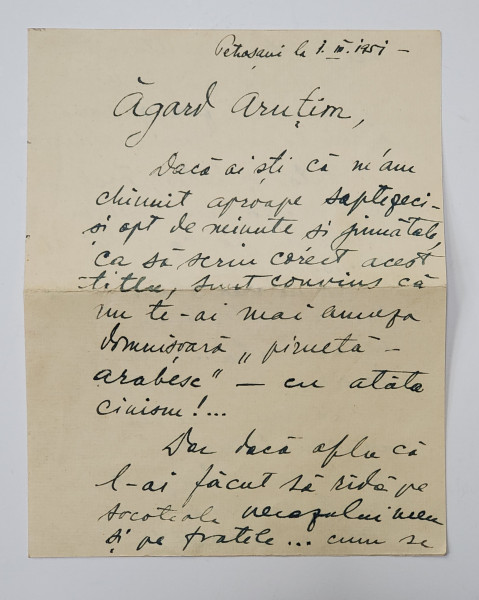 Petroșani la 1. III. 1951 –
Āgard Aruțion,
Dacă ai ști că m'am
chinuit aproape șaptezeci-
și opt de minute și jumătate,
ca să scriu corect acest
titlu, sunt convins că
nu te-ai mai amuza
domnișoară „piruetă –
arabesc" – cu atâta
cinism!...
Dar dacă aflu că
l-ai făcut să rîdă pe
socoteala necazului meu
și pe fratele... cum se